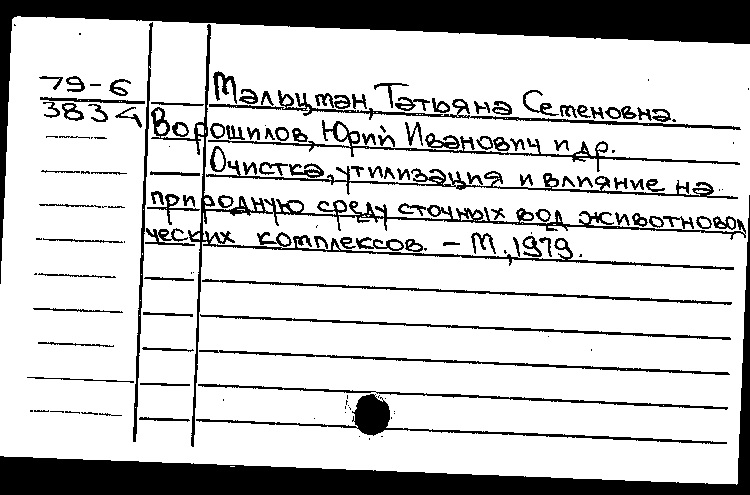 79-6
3834
Мальцман, Татьяна Семеновна.
Ворошилов, Юрий Иванович и др.
Очистка, утилизация и влияние на
природную среду сточных вод животновод
ческих комплексов. - М., 1979.